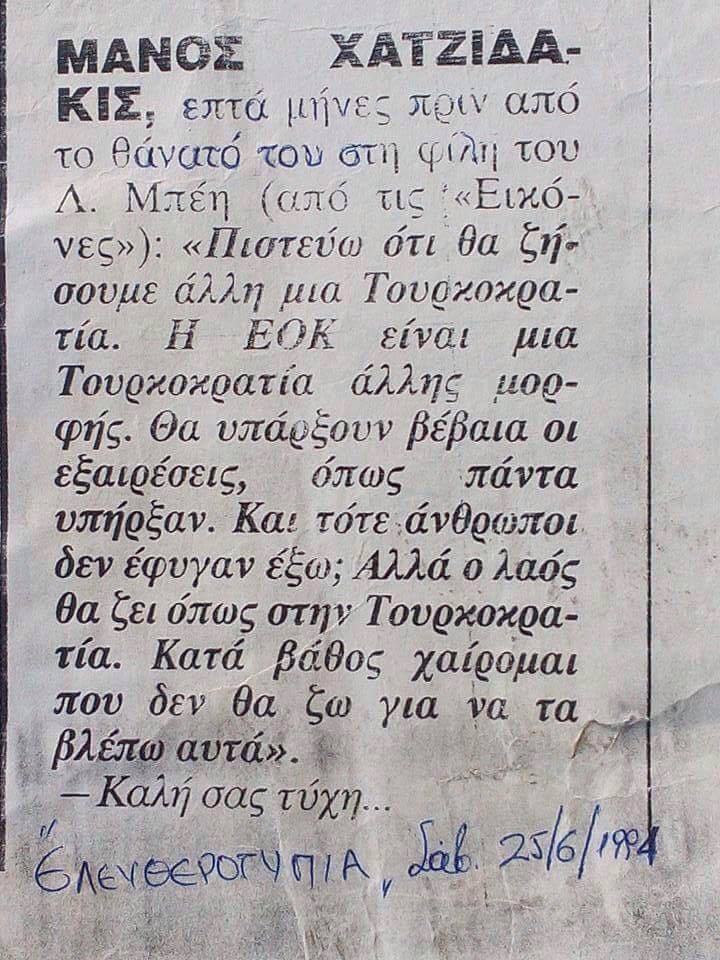 ΜΑΝΟΣ ΧΑΤΖΙΔΑ-
ΚΙΣ, επτά μήνες πριν από
το θάνατό του στη φίλη του
Λ. Μπέη (από τις «Εικό-
νες»): «Πιστεύω ότι θα ζή-
σουμε άλλη μια Τουρκοκρα-
τία. Η ΕΟΚ είναι μια
Τουρκοκρατία άλλης μορ-
φής. Θα υπάρξουν βέβαια οι
εξαιρέσεις, όπως πάντα
υπήρξαν. Και τότε άνθρωποι
δεν έφυγαν έξω; Αλλά ο λαός
θα ζει όπως στην Τουρκοκρα-
τία. Κατά βάθος χαίρομαι
που δεν θα ζω για να τα
βλέπω αυτά».
—Καλή σας τύχη...
"ΕΛΕΥΘΕΡΟΤΥΠΙΑ", Σάβ. 25/6/1994